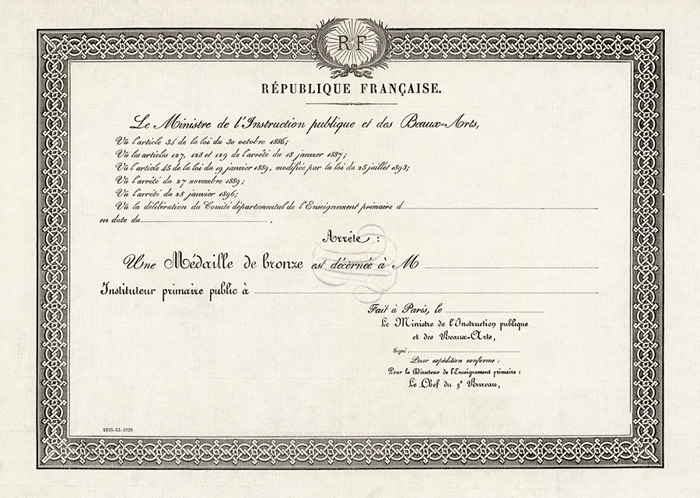 R F
RÉPUBLIQUE FRANÇAISE.
Le Ministre de l'Instruction publique et des Beaux-Arts,
Vu l'article 34 de la loi du 30 octobre 1886;
Vu les articles 127, 128 et 129 de l'arrêté du 18 janvier 1887;
Vu l'article 45 de la loi du 19 janvier 1889, modifiée par la loi du 25 juillet 1893;
Vu l'arrêté du 27 novembre 1889;
Vu l'arrêté du 28 janvier 1896;
Vu la délibération du Comité départemental de l'Enseignement primaire d
en date du
Arrête :
Une Médaille de bronze est décernée à M
Instituteur primaire public à
Fait à Paris, le
Le Ministre de l'Instruction publique
et des Beaux-Arts,
Signé
Pour expédition conforme :
Pour le Directeur de l'Enseignement primaire :
Le Chef du 3e Bureau,